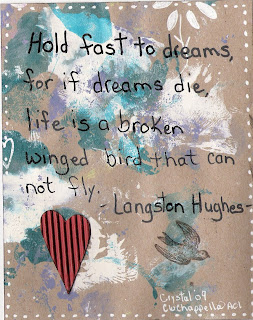 Hold fast to dreams,
for if dreams die,
life is a broken
winged bird that can
not fly.
- Langston Hughes -
Crystal '09